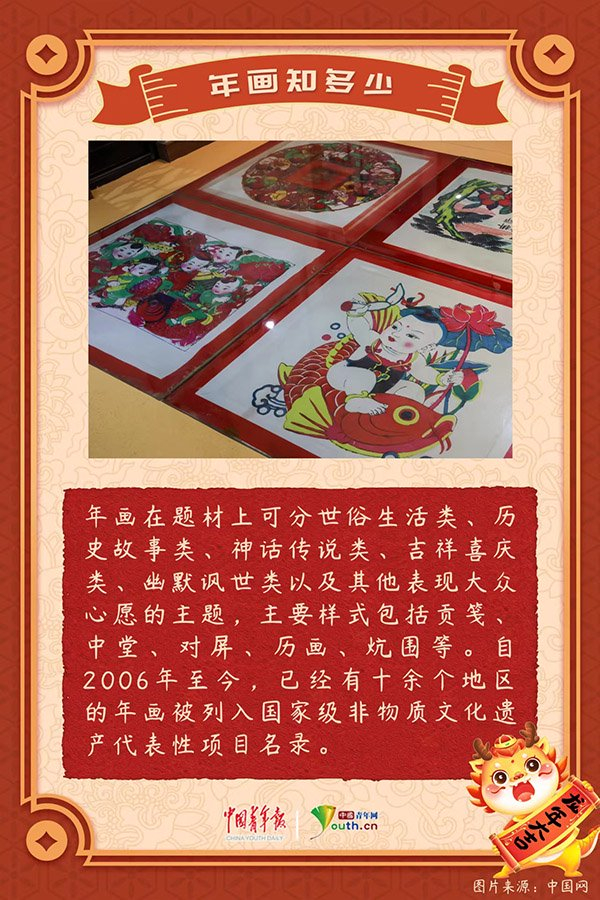 年画知多少
年画在题材上可分世俗生活类、历
史故事类、神话传说类、吉祥喜庆
类、幽默讽世类以及其他表现大众
心愿的主题，主要样式包括贡笺、
中堂、对屏、历画、炕围等。自
2006年至今，已经有十余个地区
的年画被列入国家级非物质文化遗
产代表性项目名录。
龙年大吉
中国青年报
CHINA YOUTH DAILY
中國青年网
Youth.cn
图片来源：中国网